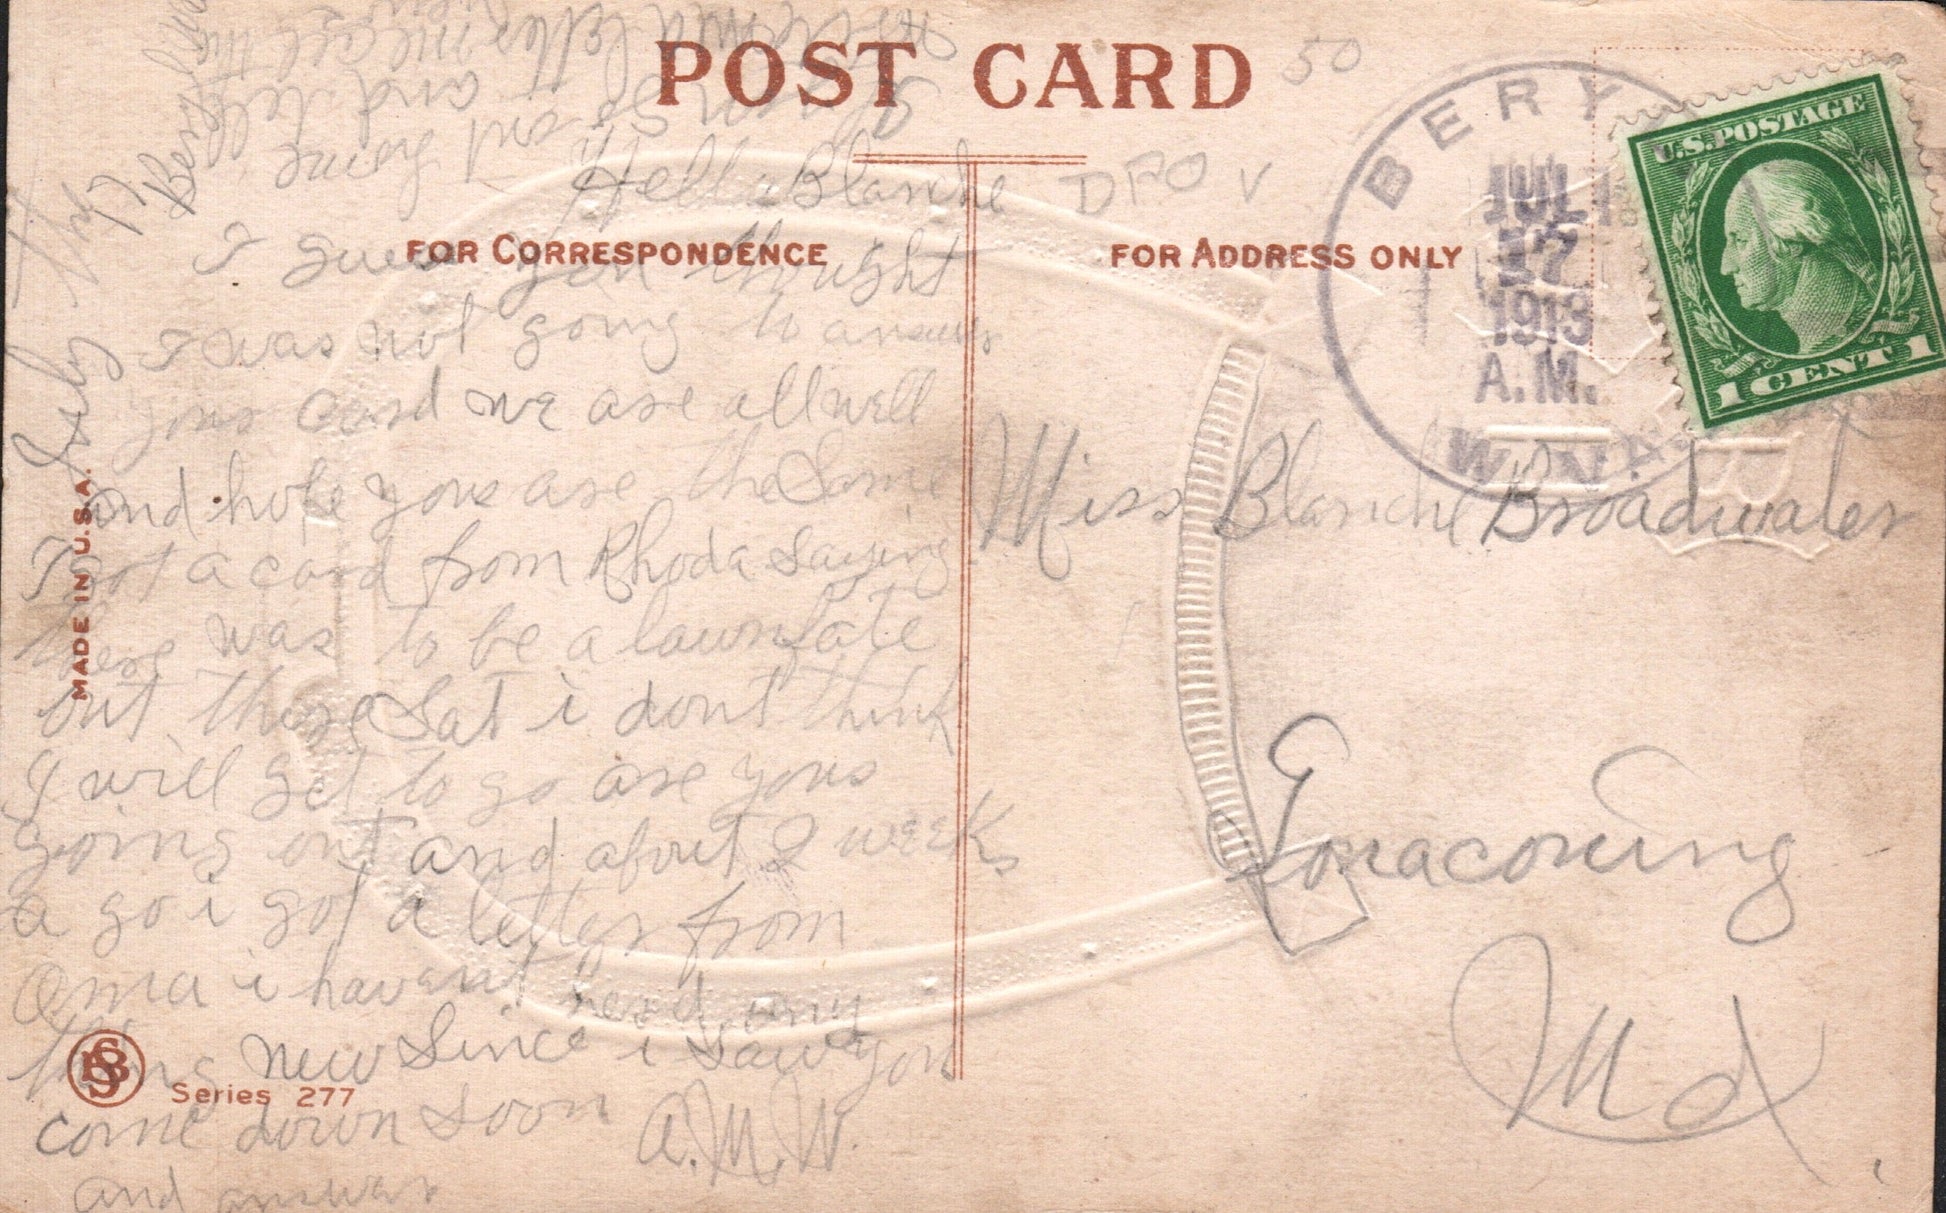 POST CARD
50
DFO V
FOR CORRESPONDENCE
FOR ADDRESS ONLY
BERY
JUL
17
1913
A.M.
W. VA.
U.S. POSTAGE
1 CENT 1
Hello Blanche
I guess you thought
I was not going to answer
your card we are all well
and hope yous are the Same
I got a card from Rhoda Saying
there was to be a lawnfate
out there Sat i dont think
I will get to go are yous
going out and about 2 weeks
a go i got a letter from
Oma i havent herd any
thing new Since i Saw you
come down Soon
and answer
A.M.W.
July the 17
MADE IN U.S.A.
Series 277
Miss Blanche Broadwater
Lonaconing
Md